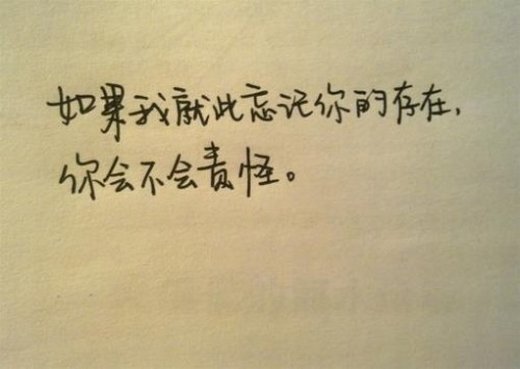 如果我就此忘记你的存在，
你会不会责怪。